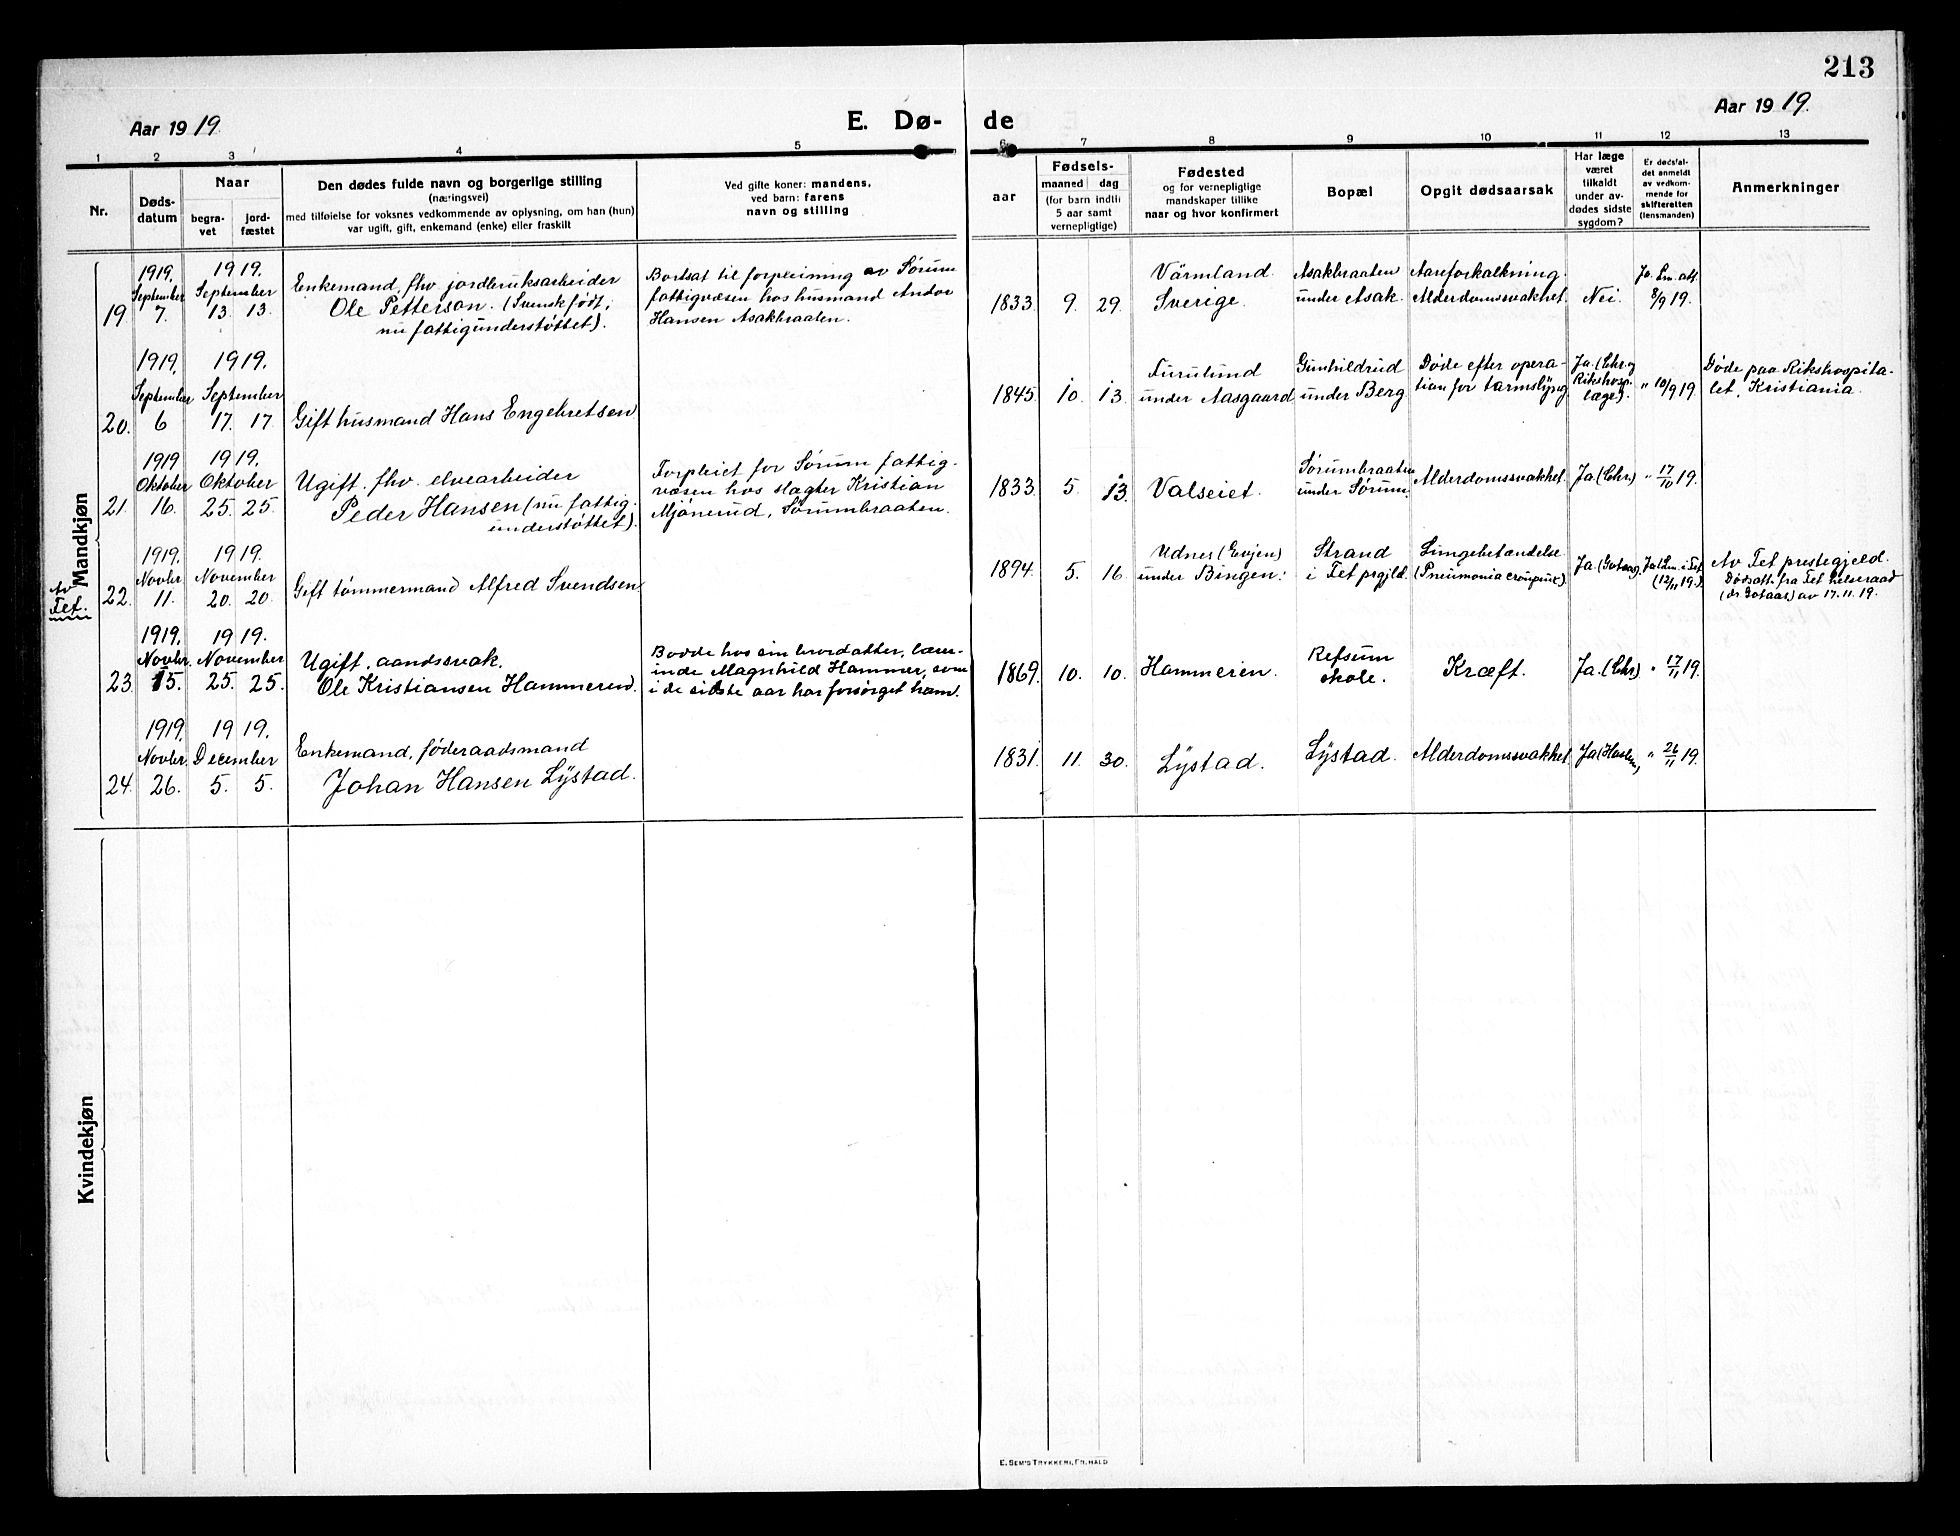 213
Aar 1919.
E. Dø-
de
Aar 1919.
1 2 3 4 5 6 7 8 9 10 11 12 13
Nr.
Døds-
datum
Naar
begra-
vet
jord-
fæstet
Den dødes fulde navn og borgerlige stilling
(næringsvei)
med tilføielse for voksnes vedkommende av oplysning, om han (hun)
var ugift, gift, enkemand (enke) eller fraskilt
Ved gifte koner: mandens,
ved barn: farens
navn og stilling
aar
Fødsels-
maaned dag
(for barn indtil
5 aar samt
vernepligtige)
Fødested
og for vernepligtige
mandskaper tillike
naar og hvor konfirmert
Bopæl
Opgit dødsaarsak
Har læge
været
tilkaldt
under av-
dødes sidste
sygdom?
Er dødsfal-
det anmeldt
av vedkom-
mende for
skifteretten
(lensmanden)
Anmerkninger
Mandkjøn
19
1919.
September
7.
1919.
September
13. 13.
Enkemand, fhv. jordbruksarbeider
Ole Petterson. (Svensk født,
nu fattigunderstøttet).
Bortsat til forpleining av Sørum
fattigvæsen hos husmand Andor
Hansen Asakbraaten.
1833. 9. 29.
Värmland.
Sverige.
Asakbraaten
under Asak.
Aareforkalkning.
Alderdomssvakhet.
Nei.
Ja. Lm. att.
8/9 19.
20.
1919.
September
6
1919.
September
17. 17.
Gift husmand Hans Engebretsen
1845. 10. 13.
Furulund
under Aasgaard
Gunhildrud
under Berg
Døde efter opera-
tion for tarmslyng
Ja. (Chr. og
Rikshospi.
læge).
" 10/9 19.
Døde paa Rikshospita-
let, Kristiania.
21.
1919
Oktober
16.
1919.
Oktober
25. 25.
Ugift, fhv. elvearbeider
Peder Hansen (nu fattig-
understøttet).
Forpleiet for Sørum fattig-
væsen hos slagter Kristian
Mjønerud, Sørumbraaten.
1833. 5. 13.
Valseiet.
Sørumbraaten
under Sørum.
Alderdomssvakhet.
Ja (Chr.)
" 17/10 19.
Av
Fet.
22.
1919.
Novbr.
11.
1919.
November
20. 20.
Gift tømmermand Alfred Svendsen
1894. 5. 16.
Udnes (Evjen)
under Bingen.
Strand
i Fet prgjld.
Lungebetændelse
(Pneumonia croupus).
Ja (Gotaas).
Ja Lm. i Fet
(12/11 19.)
Av Fet prestegjeld.
Dødsatt. fra Fet helseraad
(dr. Gotaas) av 17.11.19.
23.
1919.
Novbr.
15.
1919.
November
25. 25.
Ugift, aandssvak.
Ole Kristiansen Hammeren.
Bodde hos sin brordatter, lærer-
inde Magnhild Hammer, som
i de sidste aar har forsørget ham.
1869. 10. 10.
Hammeren.
Refsum
skole.
Kræft.
Ja. (Chr.)
" 17/11 19.
24.
1919.
Novbr.
26.
1919.
December
5. 5.
Enkemand, føderaadsmand
Johan Hansen Lystad.
1831. 11. 30.
Lystad.
Lystad.
Alderdomssvakhet
Ja
" 26/11 19.
Kvindekjøn
E. SEM'S TRYKKERI, FR.HALD